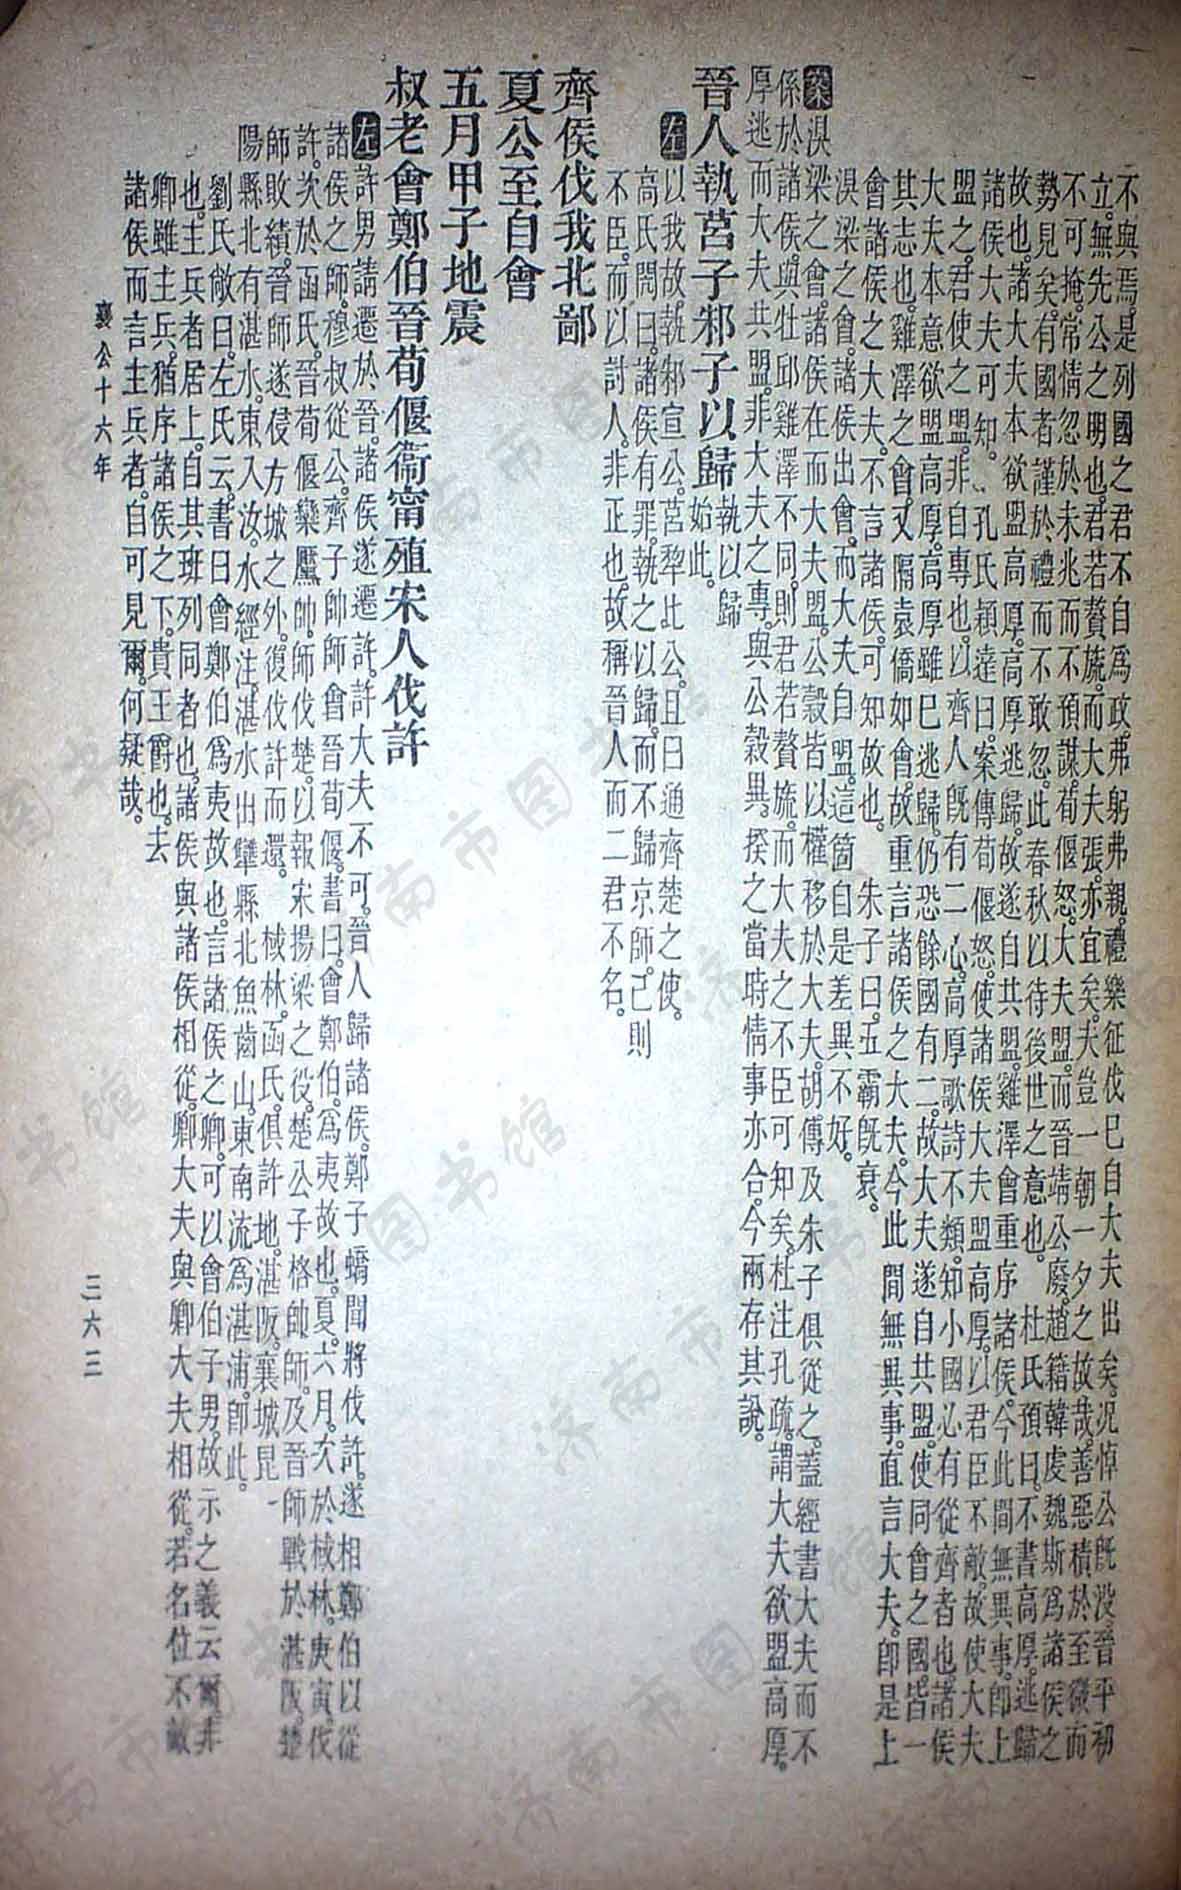 不與焉。是列國之君不自爲政。弗躬弗親。禮樂征伐已自大夫出矣。况悼公既没。晉平初
立。無先公之明也。君若贅旒。而大夫張。亦宜矣。夫豈一朝一夕之故哉。善惡積於至微而
不可掩。常情忽於未兆而不預謀。荀偃怒。大夫盟。而晉靖公廢。趙籍韓虔魏斯爲諸侯之
勢見矣。有國者謹於禮而不敢忽。此春秋以待後世之意也。　杜氏預曰。不書高厚。逃歸
故也。諸大夫本欲盟高厚。高厚逃歸。故遂自共盟。雞澤會重序諸侯。今此間無異事。即上
諸侯大夫可知。　孔氏穎達曰。案傳荀偃怒。使諸侯大夫盟高厚。以君臣不敵。故使大夫
盟之。君使之盟。非自專也。以齊人既有二心。高厚歌詩不類。知小國必有從齊者也。諸侯
大夫本意欲盟高厚。高厚雖已逃歸。仍恐餘國有二。故大夫遂自共盟。使同會之國。皆一
其志也。雞澤之會。又隔袁僑如會。故重言諸侯之大夫。今此間無異事。直言大夫。即是上
會諸侯之大夫。不言諸侯。可知故也。　朱子曰。五霸既衰。
湨梁之會。諸侯出會。而大夫自盟。這箇自是差異不好。
案湨梁之會。諸侯在而大夫盟。公穀皆以權移於大夫。胡傳及朱子俱從之。蓋經書大夫而不
係於諸侯。與牡邱雞澤不同。則君若贅旒。而大夫之不臣可知矣。杜注孔疏。謂大夫欲盟高厚。
厚逃而大夫共盟。非大夫之專。與公穀異。揆之當時情事亦合。今兩存其說。
晉人執莒子邾子以歸
執以歸
始此。
左以我故。執邾宣公。莒犂比公。且曰通齊楚之使。
高氏閌曰。諸侯有罪。執之以歸。而不歸京師。己則
不臣。而以討人。非正也。故稱晉人而二君不名。
齊侯伐我北鄙
夏公至自會
五月甲子地震
叔老會鄭伯晉荀偃衞甯殖宋人伐許
左許男請遷於晉。諸侯遂遷許。許大夫不可。晉人歸諸侯。鄭子蟜聞將伐許。遂相鄭伯以從
諸侯之師。穆叔從公。齊子帥師會晉荀偃。書曰。會鄭伯。爲夷故也。夏。六月。次於棫林。庚寅。伐
許。次於函氏。晉荀偃欒黶帥師伐楚。以報宋揚梁之役。楚公子格帥師。及晉師戰於湛阪。楚
師敗績。晉師遂侵方城之外。復伐許而還。　棫林。函氏。俱許地。湛阪。襄城昆
陽縣北有湛水。東入汝。水經注。湛水出犨縣北魚齒山。東南流爲湛浦。即此。
劉氏敞曰。左氏云。書曰會鄭伯爲夷故也。言諸侯之卿。可以會伯子男。故示之義云爾。非
也。主兵者居上。自其班列同者也。諸侯與諸侯相從。卿大夫與卿大夫相從。若名位不敵
卿雖主兵。猶序諸侯之下。貴王爵也。去
諸侯而言主兵者。自可見爾。何疑哉。
襄公十六年
三六三